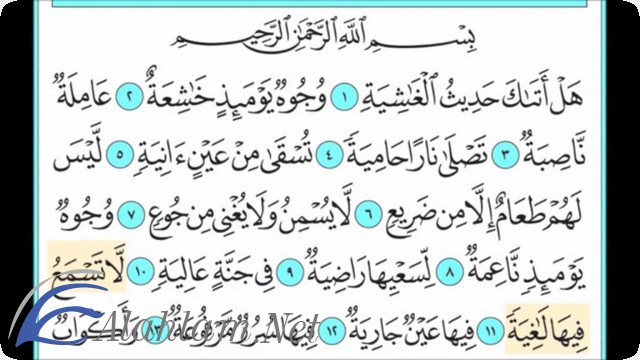 بِسْمِ ٱللَّهِ ٱلرَّحْمَٰنِ ٱلرَّحِيمِ
هَلْ أَتَىٰكَ حَدِيثُ ٱلْغَٰشِيَةِ ١ وُجُوهٌ يَوْمَئِذٍ خَٰشِعَةٌ ٢ عَامِلَةٌ
نَّاصِبَةٌ ٣ تَصْلَىٰ نَارًا حَامِيَةً ٤ تُسْقَىٰ مِنْ عَيْنٍ ءَانِيَةٍ ٥ لَّيْسَ
لَهُمْ طَعَامٌ إِلَّا مِن ضَرِيعٍ ٦ لَّا يُسْمِنُ وَلَا يُغْنِى مِن جُوعٍ ٧ وُجُوهٌ
يَوْمَئِذٍ نَّاعِمَةٌ ٨ لِّسَعْيِهَا رَاضِيَةٌ ٩ فِى جَنَّةٍ عَالِيَةٍ ١٠ لَّا تَسْمَعُ
فِيهَا لَٰغِيَةً ١١ فِيهَا عَيْنٌ جَارِيَةٌ ١٢ فِيهَا سُرُرٌ مَّرْفُوعَةٌ ١٣ وَأَكْوَابٌ
Alahlam.Net